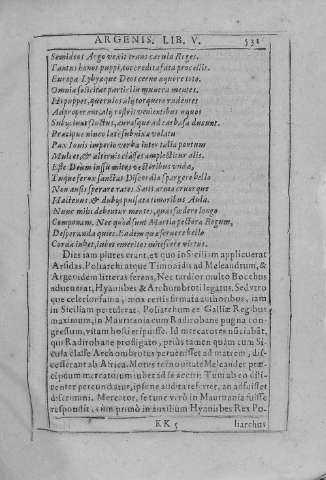 ARGENIS, LIB. V. 531
Semideos Argo vexit trans cærula Reges.
Tantus honos puppi, tot credita fata procellis.
Europa Lybiæque Deos cerno æquore isto.
Omnia sollicitat partis illis munera mentes.
quæruloss alij torquere rudentes
Ad properent, alij rostris venientibus equos
curasque ad carbasa ducunt.
Pax Iouis imperio verba inter talia pontum
Mulcet, & alternis classes amplectitur alis.
Este Deum iussu mites vectoribus vnda,
Tuque ferox sanctas Discordia spargere bello
Non ausis sperare rates. Satis arma cruorque
& dubijs pulsata timoribus Aula.
Nunc mihi debentur mentes, quas fœdere longo
Componam. Nec quod sunt Martia pectora Regum,
Desperanda quies. Eadem quæ feruere bello
Corda iubet, iubet emeritos mitescere virtus.
Dies iam plures erant, ex quo in Siciliam applicuerat
Arsidas, Poliarchi atque Timonidis ad Meleandrum, &
Argenidem litteras ferens. Nec tardior multo Bocchus
aduenerat, Hyanisbes & Archombroti legatus. Sed vtroque
celerior fama, mox certis firmata authoribus, iam
in Siciliam peruenerat, Poliarchum ex Galliæ Regibus
maximum, in Mauritania cum Radirobane pugna congressum,
vitam hosti eripuisse. Id mercatores nuntiabāt,
qui Radirobane profligato, prius tamen quàm cum Sicula
classe Archombrotus peruenisset ad matrem, discesserant
ab Africa. Motus rei nouitate Meleander præcipuum
mercatorum iubet ad se acciri. Tum ab eo diuenter
percunctatur, ipsene audita referret, an adfuisset
discrimini. Mercator, se tunc verò in Mauritania fuisse
respondit, cùm primò in auxilium Hyanisbes Rex Po-
KK 5 liarchus